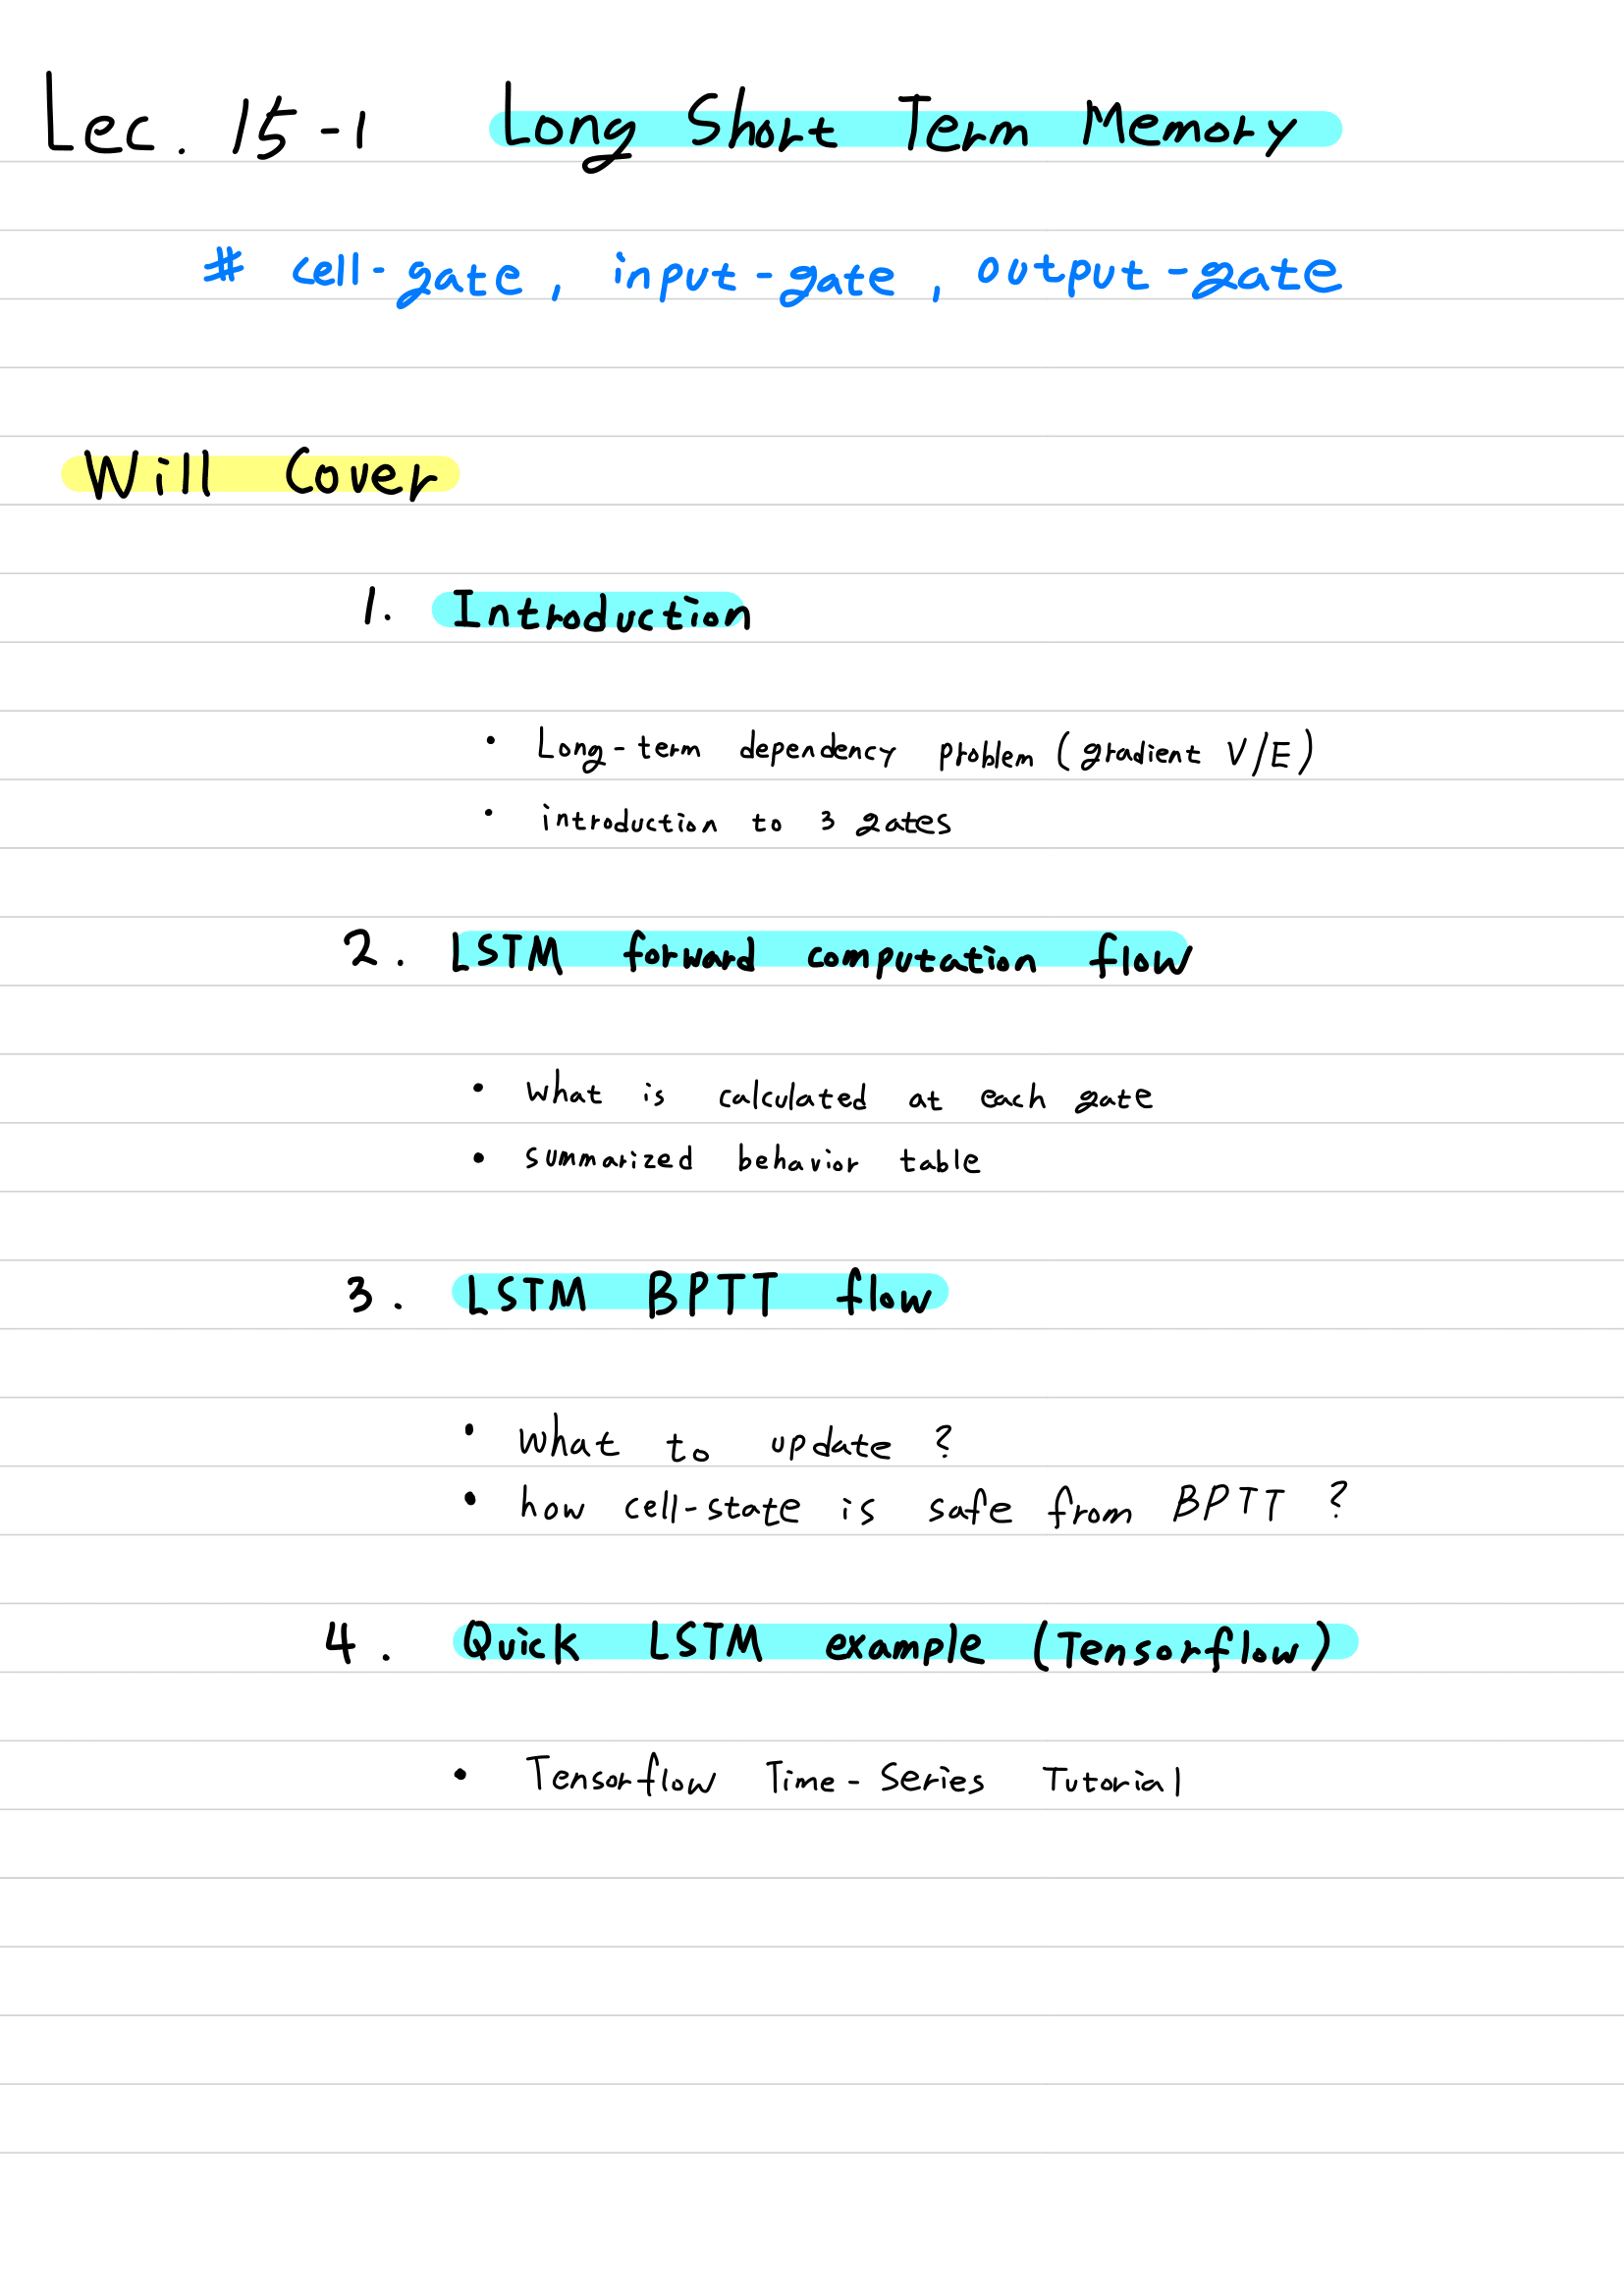 Lec. 15-1 Long Short Term Memory
# cell-gate, input-gate, output-gate
Will Cover
1. Introduction
• Long-term dependency problem (gradient V/E)
• introduction to 3 gates
2. LSTM forward computation flow
• what is calculated at each gate
• summarized behavior table
3. LSTM BPTT flow
• what to update ?
• how cell-state is safe from BPTT ?
4. Quick LSTM example (Tensorflow)
• Tensorflow Time-Series Tutorial